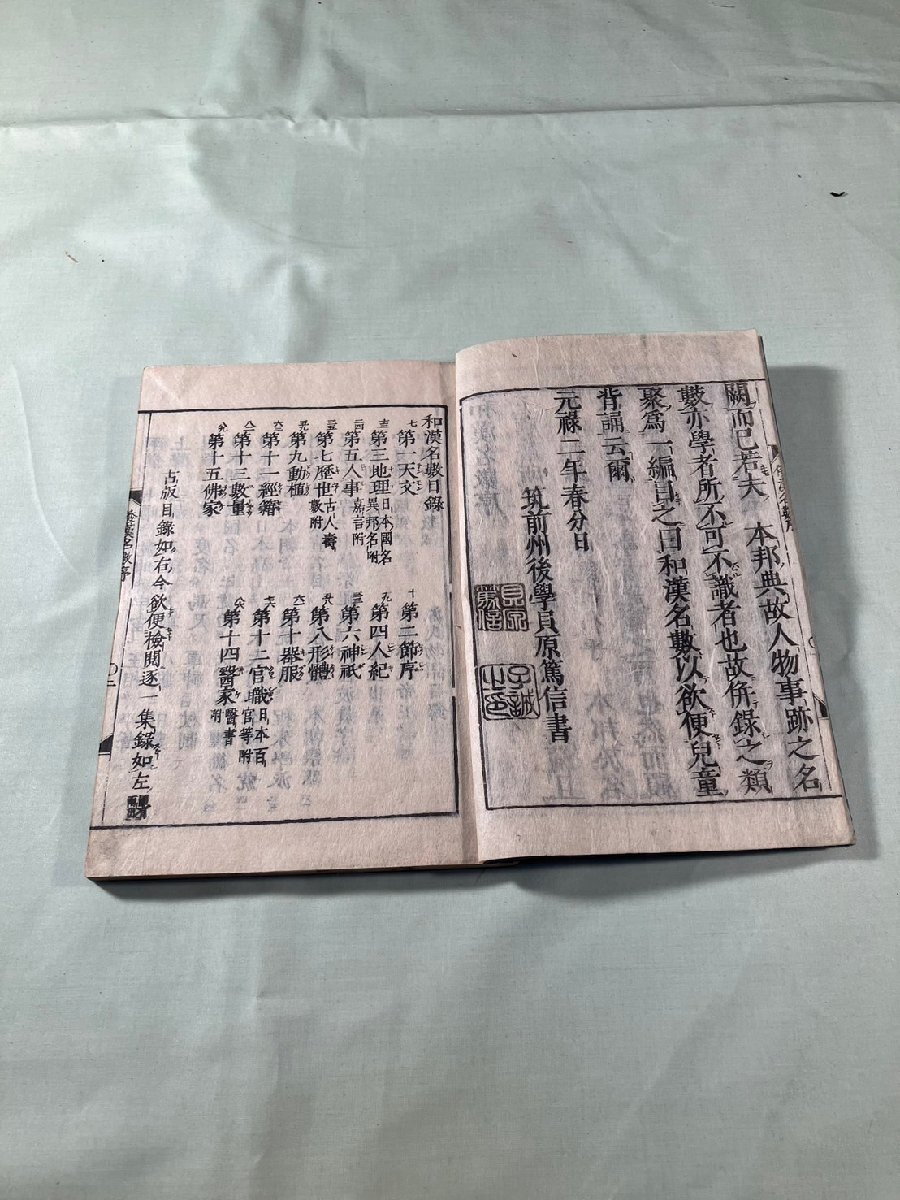 闕而已若夫 本邦典故人物事跡之名
數亦學者所不可不識者也故併錄之類
聚爲一編目之曰和漢名數以欲便兒童
背誦云爾
元祿二年春分日
筑前州後學貝原篤信書
貝原篤信
子誠之印
和漢名數目錄
第一天文 第二節序
第三地理日本國名異邦名附 第四人紀
第五人事嘉言附 第六神祇
第七歷世古人壽數附 第八形體
第九動植 第十器服
第十一經籍 第十二官職日本百官等附
第十三數量 第十四醫家醫書附
第十五佛家
古版目錄如右今欲便檢閱逐一集錄如左